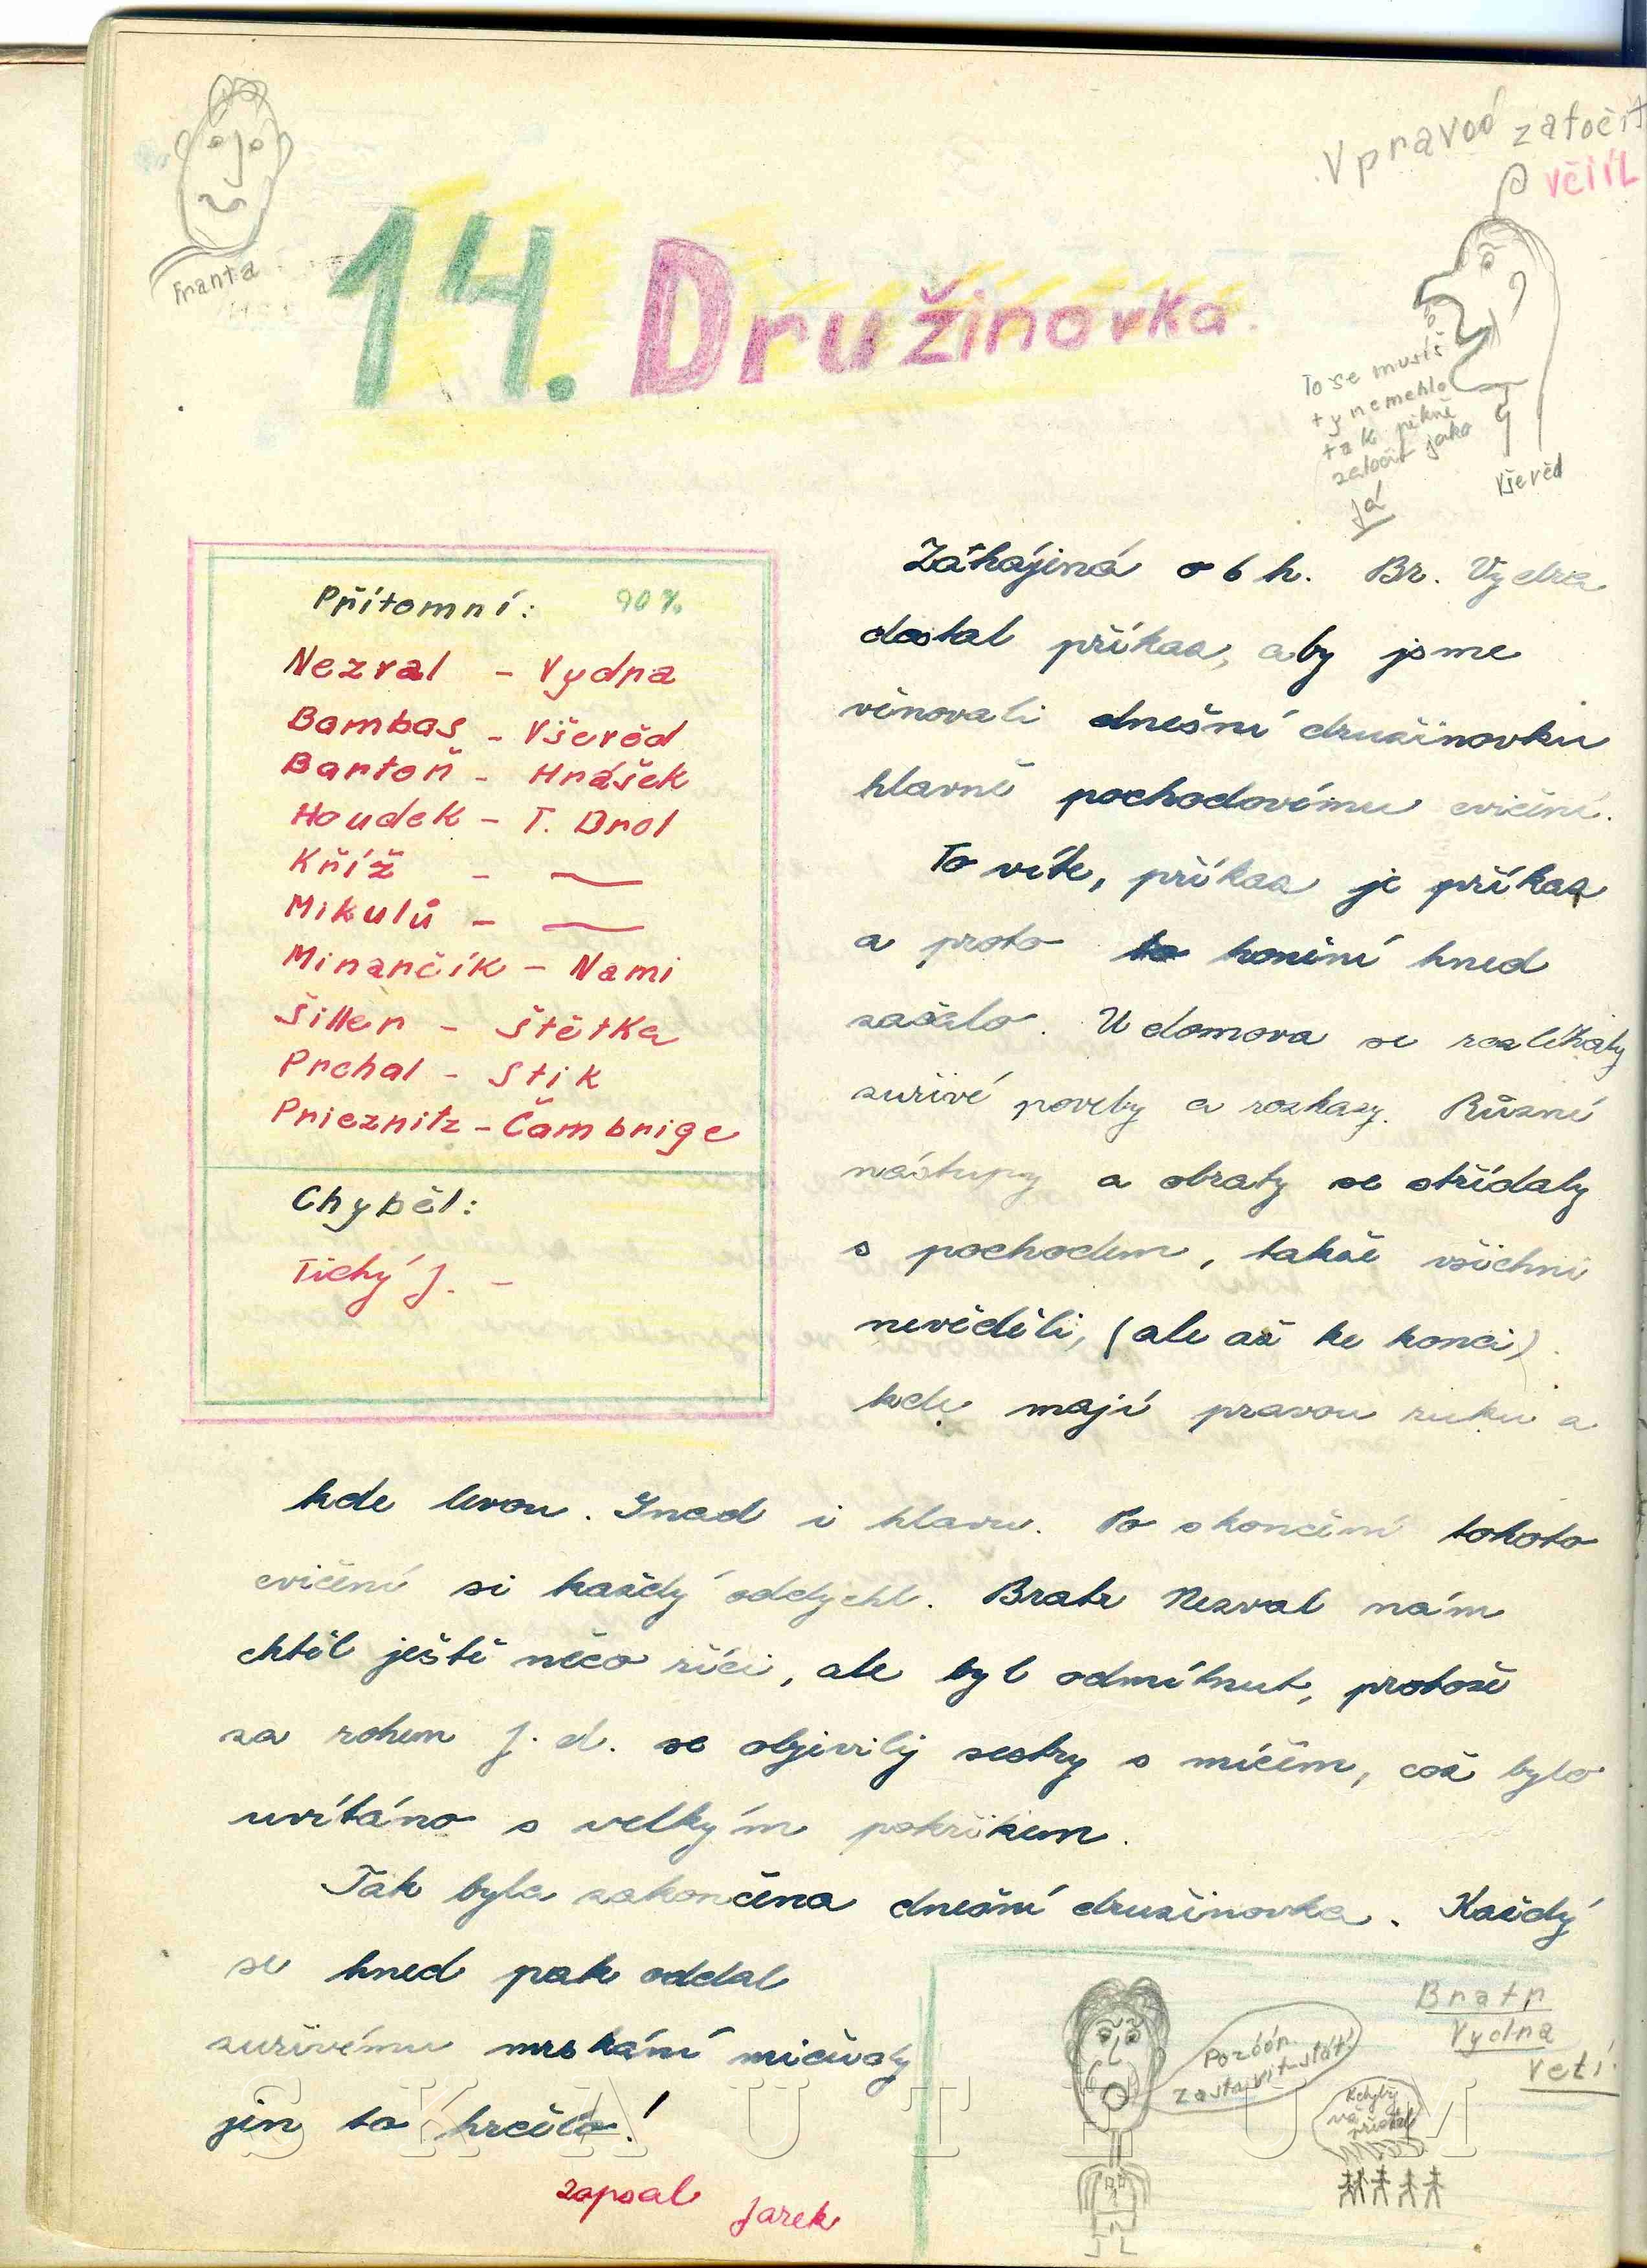 Franta
Vpravoó zatočit
včííL
14. Družinovka.
To se musíš
ty nemehlo
tak pěkně
zatočit jako
já
Vševěd
Přítomní: 90%
Nezval - Vydra
Bambas - Všerěd
Bartoň - Hrášek
Houdek - T. Brol
Kříž -
Mikulů -
Minarčík - Nami
Šiller - Štětka
Prchal - Stik
Prieznitz - Čambrige
Chyběl:
Tichý J. -
Zahájená o 6 h. Br. Vydra
dostal příkaz, aby jsme
věnovali dnešní družinovku
hlavně pochodovému cvičení.
To víte, příkaz je příkaz
a proto honění hned
začalo. U domova se rozléhaly
zuřivé povely a rozkazy. Různé
nástupy a obraty se střídaly
s pochodem, takže všichni
nevěděli, (ale až ke konci)
kde mají pravou ruku a
kde levou. Snad i hlavu. Po skončení tohoto
cvičení si každý oddychl. Bratr Nezval nám
chtěl ještě něco říci, ale byl odmítnut, protože
za rohem j. d. se objevily sestry s míčem, což bylo
uvítáno s velkým pokřikem.
Tak byla zakončena dnešní družinovka. Každý
se hned pak oddal
zuřivému mrskání mičudy
jen to hrčelo!
zapsal Jarek
Bratr
Vydra
velí.
Pozóór
zastavit stát!
Kdyby
SKAUTEUM